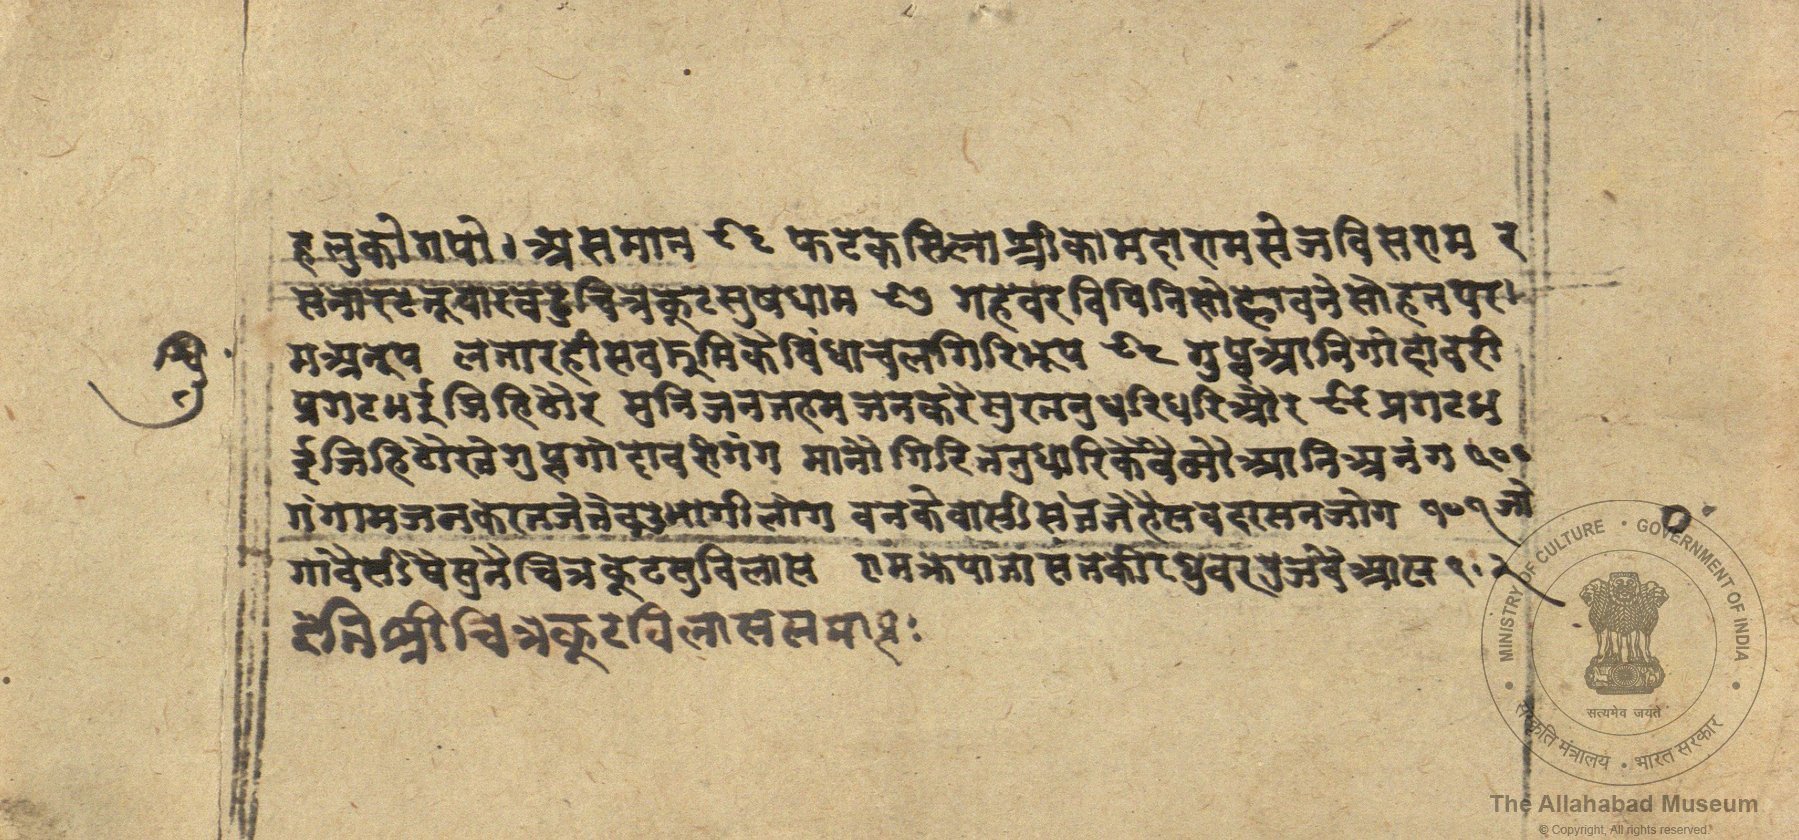 हलुकोगपो। असमान ९६ फटकसिलाश्रीकामदारामसेजविसराम र
सनास्टनूवारवदुचित्रकूटसुषधाम ९७ गहवरविपिनिसोहावनेसोहनपरा
मअनूप लतारहीसवझूमिकैविंधाचलगिरिभूप ९८ गुप्तआनिगोदावरी
प्रगटभईजिहिठौर मुनिजनजहमजनकरैसुरतनुधरिधरिऔर ९९ प्रगटभ
ईजिहिठोरवेगुप्तगोदावरीगंग मानौगिरितनुधारिकेवैठ्यौआनिअनंग १००
गंगामजनकरतजेतेवडभागीलोग वनकेवासीसंतजेहैसवदरसनजोग १०१ जो
गावैसीषैसुनैचित्रकूटसुविलास रामक्रपातासंतकीरघुवरपुजवैआस १०२
इतिश्रीचित्रकूटविलाससमाप्तः
MINISTRY OF CULTURE • GOVERNMENT OF INDIA
सत्यमेव जयते
संस्कृति मंत्रालय • भारत सरकार
The Allahabad Museum
© Copyright, All rights reserved.